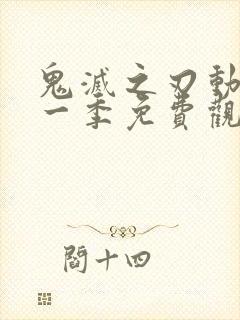 鬼滅之刃動
一季免費觀
閻十四